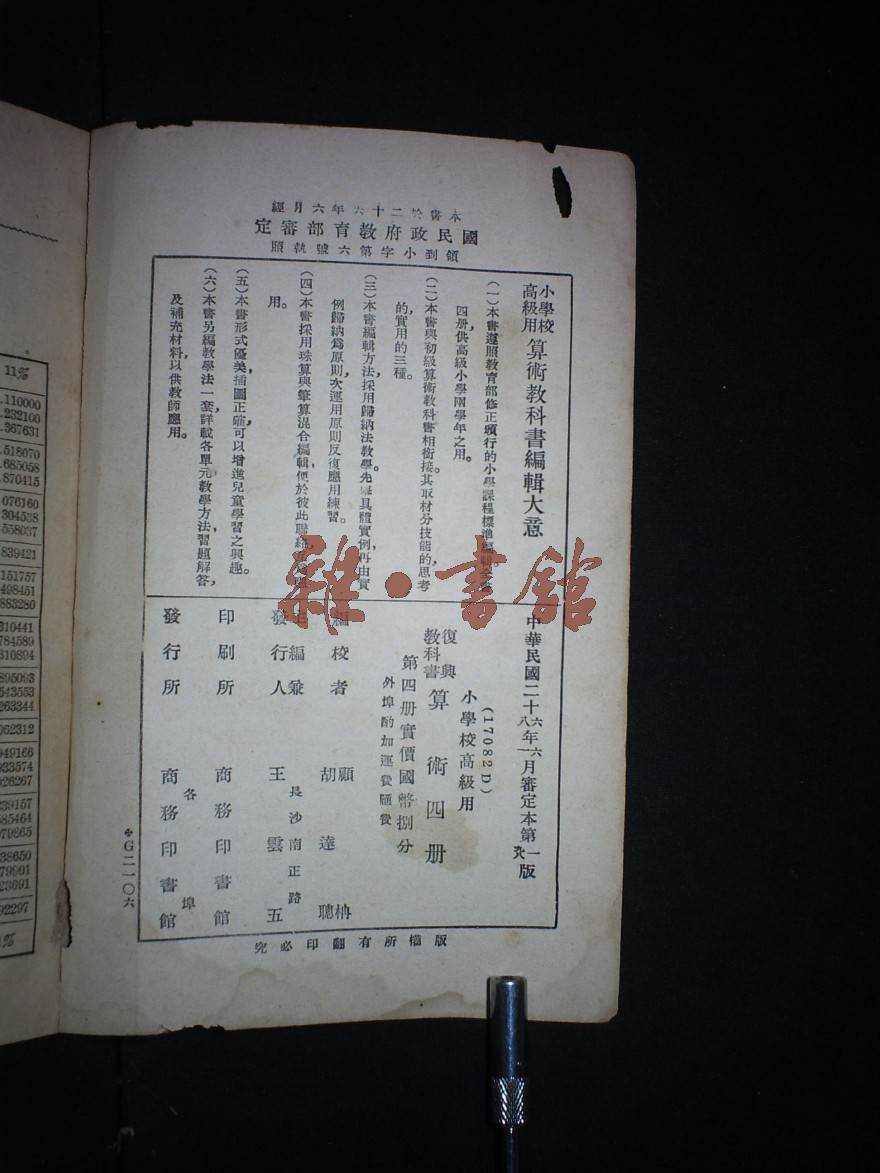 本書於二十六年六月經
國民政府教育部審定
領到小字第六號執照
小學校高級用 算術教科書編輯大意
(一)本書遵照教育部修正頒行的小學課程標準編輯
四册,供高級小學兩學年之用。
(二)本書與初級算術教科書相銜接,其取材分技能的思考
的,實用的三種。
(三)本書編輯方法,採用歸納法教學,先舉具體實例,再由實
例歸納爲原則,次運用原則反復應用練習。
(四)本書採用珠算與筆算混合編輯,便於彼此聯絡
用。
(五)本書形式優美,插圖正確,可以增進兒童學習之興趣。
(六)本書另編教學法一套,詳載各單元教學方法,習題解答,
及補充材料,以供教師應用。
中華民國二十六年六月審定本第一版
八 一 九
(17082D)
小學校高級用
復興教科書 算術四册
第四册實價國幣捌分
外埠酌加運費匯費
編校者 顧枬
胡達聰
主編兼發行人 王雲五
長沙南正路
印刷所 商務印書館
發行所 商務印書館
各埠
版權所有翻印必究
G二一〇六
雜·書館
11%
.110000
.232100
.367631
.518070
.685058
.870415
076160
304538
558037
839421
151757
498451
883280
310441
784589
310894
895093
543553
263344
062312
949166
933574
926267
39157
85464
79865
38650
79901
23691
92297